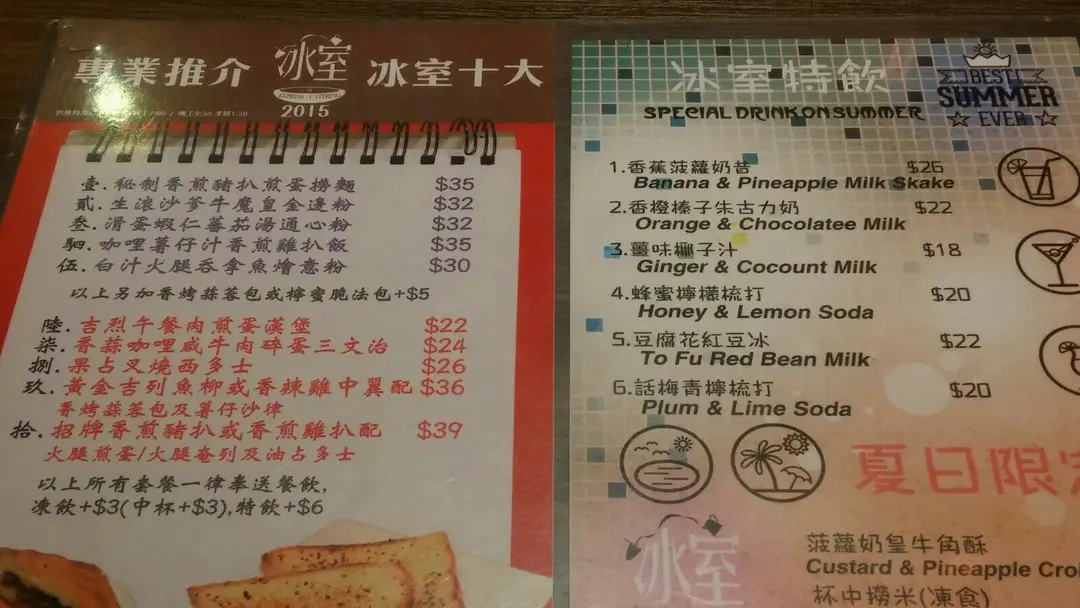 專業推介 冰室 冰室十大
EXPRESS CATERING
2015
壹.秘制香煎豬扒煎蛋撈麵 $35
貳.生滾沙爹牛魔皇金邊粉 $32
叁.滑蛋蝦仁蕃茄湯通心粉 $32
駟.咖哩薯仔汁香煎雞扒飯 $35
伍.白汁火腿吞拿魚燴意粉 $30
以上另加香烤蒜蓉包或檸蜜脆法包+$5
陸.吉烈午餐肉煎蛋漢堡 $22
柒.香蒜咖哩咸牛肉碎蛋三文治 $24
捌.果占叉燒西多士 $26
玖.黃金吉列魚柳或香辣雞中翼配 $36
香烤蒜蓉包及薯仔沙律
拾.招牌香煎豬扒或香煎雞扒配 $39
火腿煎蛋/火腿奄列及油占多士
以上所有套餐一律奉送餐飲,
凍飲+$3(中杯+$3),特飲+$6
冰室特飲
SPECIAL DRINK ON SUMMER
BEST
SUMMER
EVER
1.香蕉菠蘿奶昔 $26
Banana & Pineapple Milk Skake
2.香橙榛子朱古力奶 $22
Orange & Chocolatee Milk
3.薑味椰子汁 $18
Ginger & Cocount Milk
4.蜂蜜檸檬梳打 $20
Honey & Lemon Soda
5.豆腐花紅豆冰 $22
To Fu Red Bean Milk
6.話梅青檸梳打 $20
Plum & Lime Soda
夏日限定
冰室
菠蘿奶皇牛角酥
Custard & Pineapple Croi
杯中撈米(凍食)